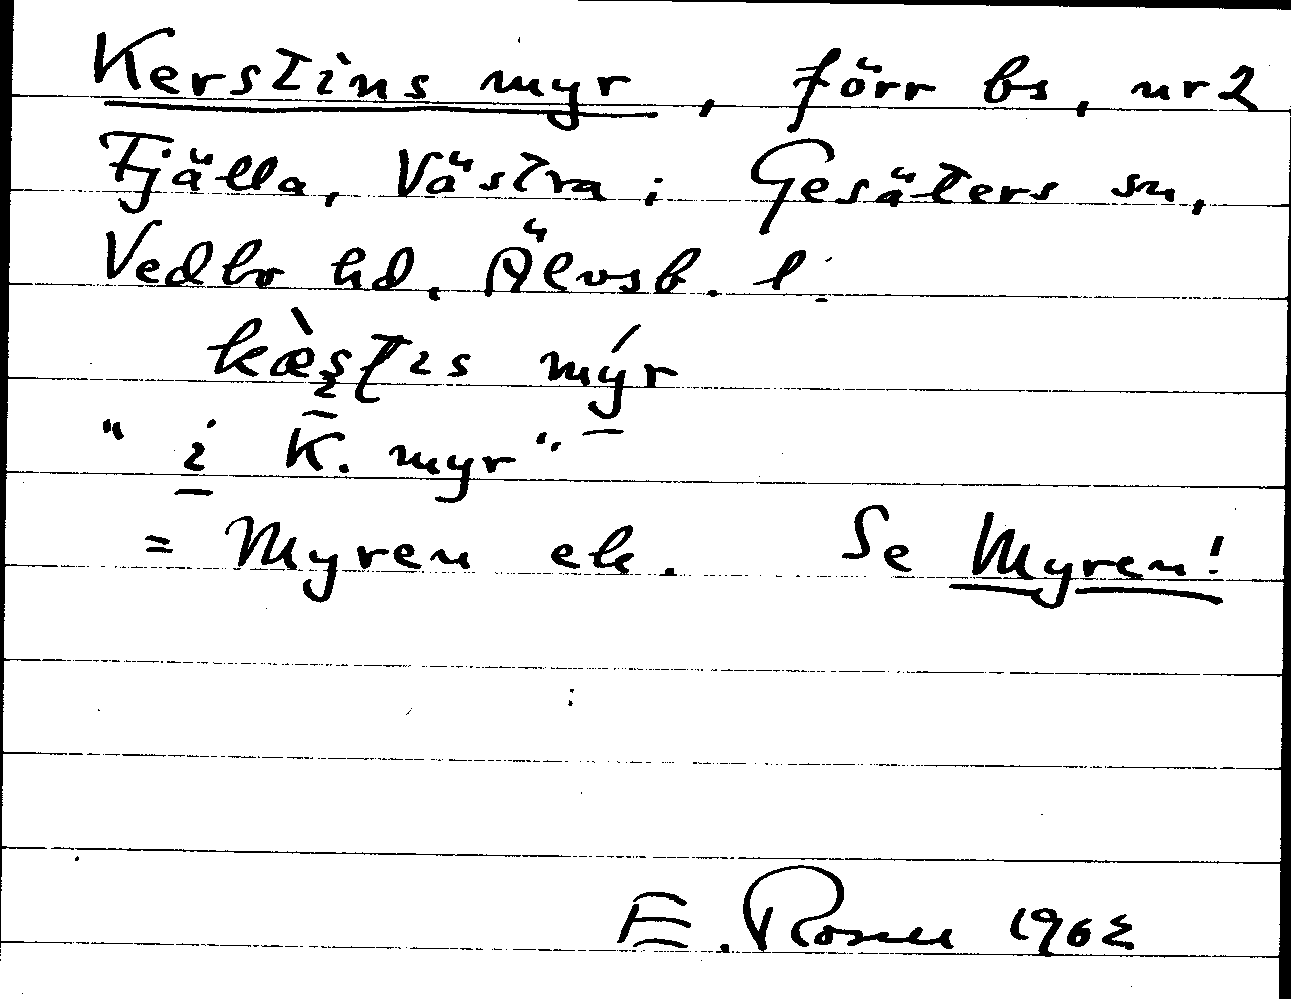 Kerstins myr, förr bs, nr 2
Fjälla, Västra i Gesäters sn,
Vedbo hd. Älvsb. l.
kæ̀ʂʈɪs mýr
"i K. myr"
= Myren ek. Se Myren!
E. Rosen 1962